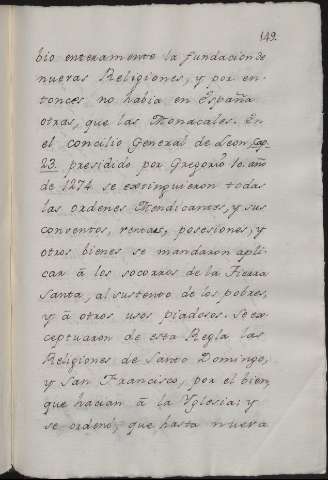 149.
bio enteramente la fundacion de
nuevas Religiones, y por en-
tonces no habia en España
otras, que las Monacales. En
el concilio General de Leon, Cap.
23. presidido por Gregorio 10. año
de 1274 se extinguieron todas
las ordenes Mendicantes, y sus
conventos, rentas, posesiones, y
otros bienes se mandaron apli-
car â los socorros de la Tierra
Santa, al sustento de los pobres,
y â otros usos piadosos. Se ex-
ceptuaron de esta Regla las
Religiones de Santo Domingo,
y San Francisco, por el bien,
que hacian â la Yglesia; y
se ordenó, que hasta nueva